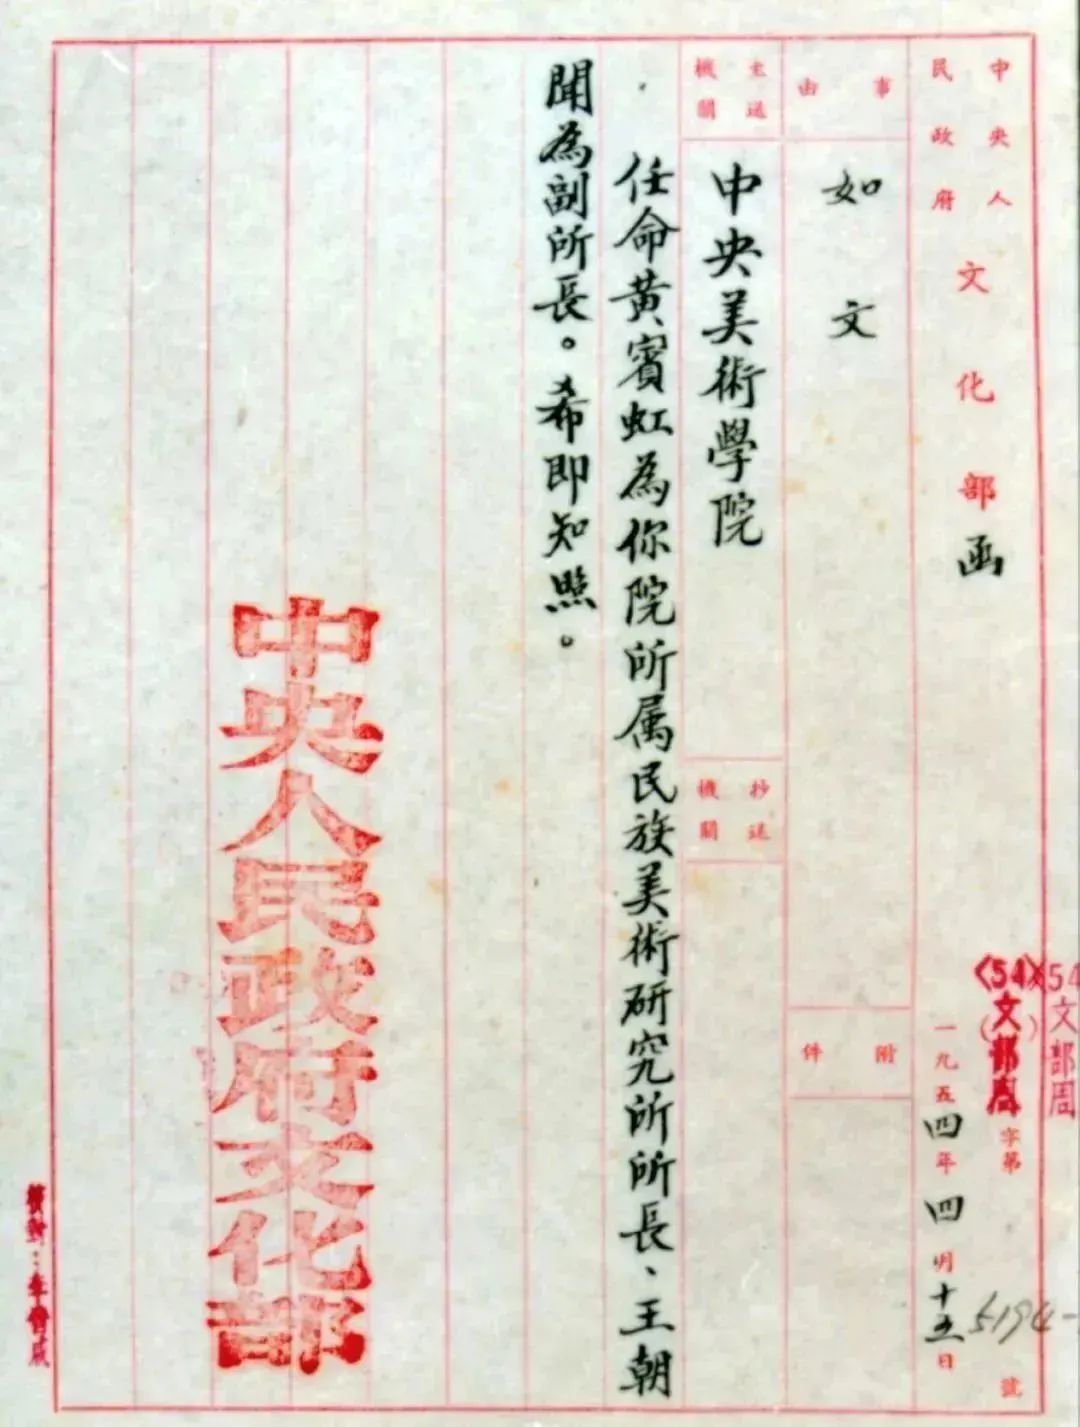 中央人民政府文化部函
〈54〉文部周字第5194號
54文部周
一九五四年四月十五日
事由
如文
附件
主送機關
中央美術學院
抄送機關
任命黃賓虹為你院所属民族美術研究所所長、王朝
聞為副所長。希即知照。
中央人民政府文化部